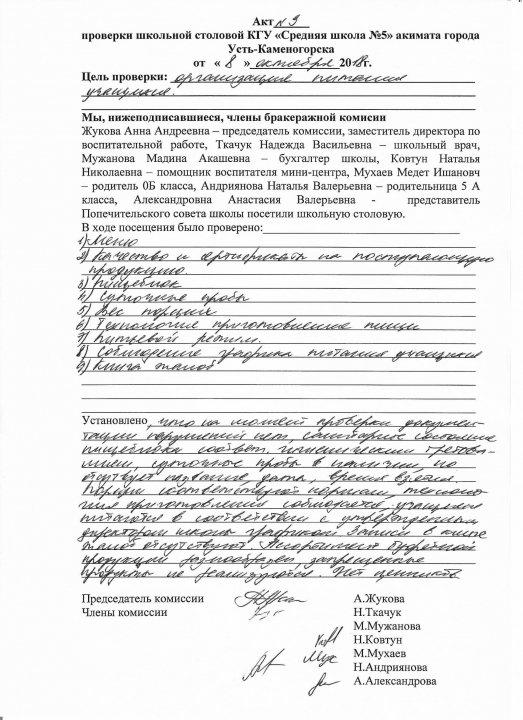 Акт №9
проверки школьной столовой КГУ «Средняя школа №5» акимата города
Усть-Каменогорска
от « 8 » октября 2018г.
Цель проверки: организация питания
учащихся.
Мы, нижеподписавшиеся, члены бракеражной комисии
Жукова Анна Андреевна – председатель комиссии, заместитель директора по
воспитательной работе, Ткачук Надежда Васильевна – школьный врач,
Мужанова Мадина Акашевна – бухгалтер школы, Ковтун Наталья
Николаевна – помощник воспитателя мини-центра, Мухаев Медет Ишанович
– родитель 0Б класса, Андриянова Наталья Валерьевна – родительница 5 А
класса, Александровна Анастасия Валерьевна - представитель
Попечительского совета школы посетили школьную столовую.
В ходе посещения было проверено:
1) Меню
2) Качество и сертификаты на поступающую
продукцию.
3) Пищеблок
4) Суточные пробы
5) Вес порций
6) Технология приготовления пищи
7) Питьевой режим.
8) Соблюдение графика питания учащихся
9) Книга жалоб
Установлено, что на момент проверки докумен-
тации нарушений нет, санитарное состояние
пищеблока соответ. гигиеническим требова-
ниям, суточные пробы в наличии, но
отсутствует название, дата, время взятия.
Порции соответствуют нормам, техноло-
гия приготовления соблюдается, учащиеся
питаются в соответствии с утвержденным
директором школы графиком. Записи в книге
жалоб отсутствуют. Ассортимент буфетной
продукции разнообразен, запрещенные
продукты не реализуются. Нет
Председатель комиссии А.Жукова
Члены комиссии Н.Ткачук
М.Мужанова
Н.Ковтун
М.Мухаев
Н.Андриянова
А.Александрова